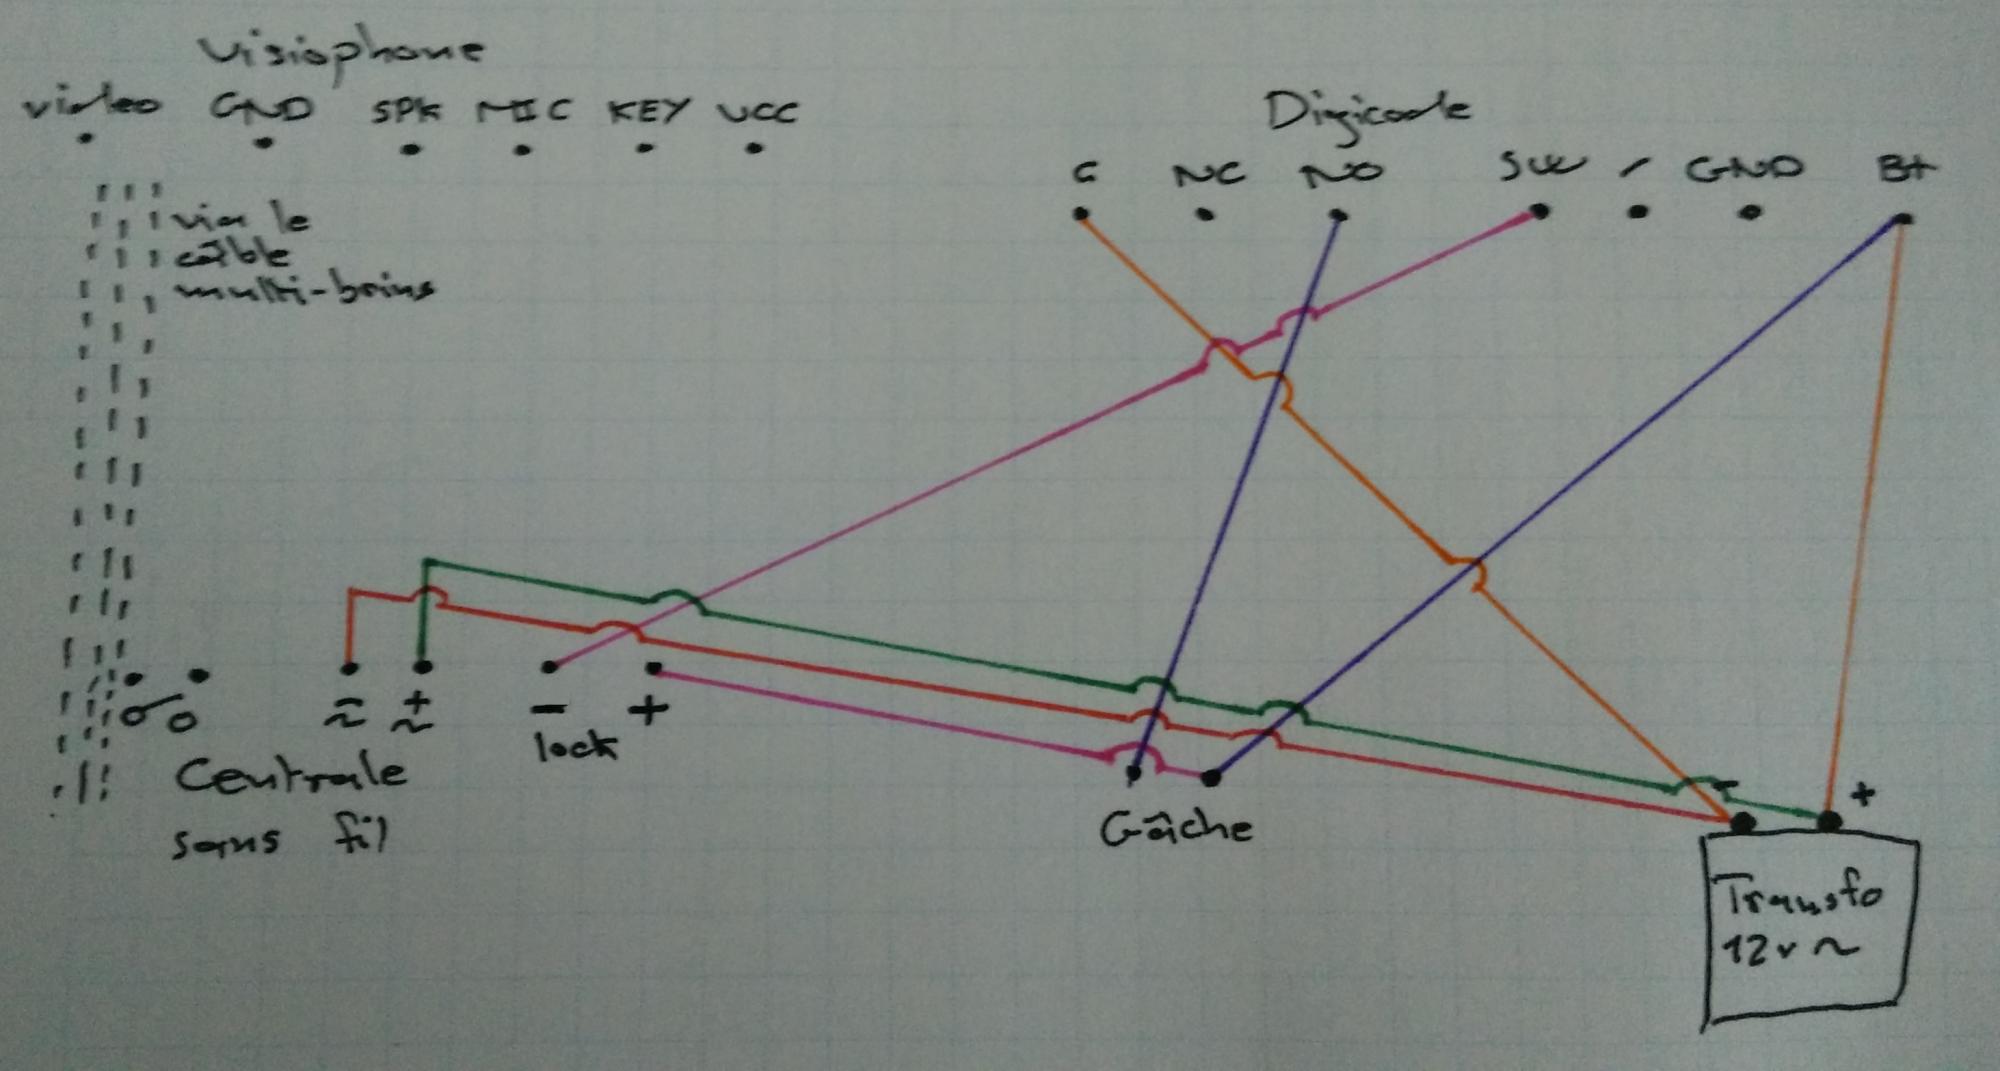 Visiophone
video GND SPK MIC KEY VCC
via le
câble
multi-brins
Digicode
C NC NO SW / GND B+
≂ ± ~ - +
lock
Centrale
sans fil
Gâche
- +
Transfo
12v ~